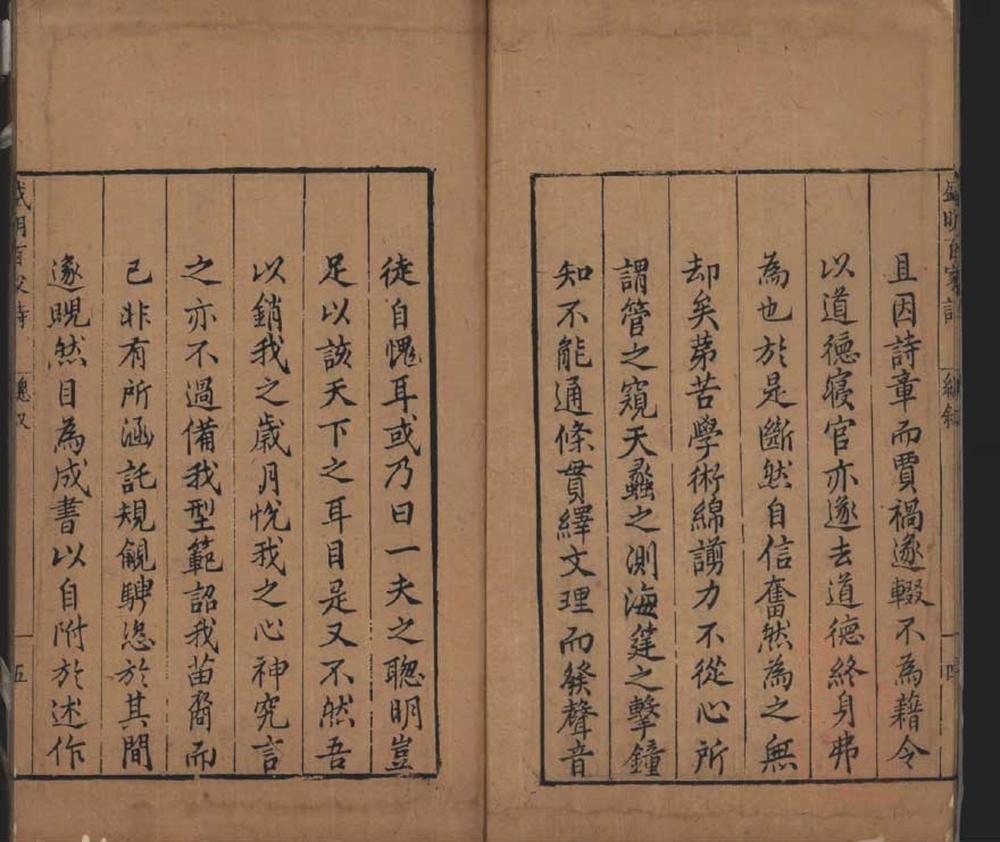 且因詩章而賈禍遂輟不為藉令
以道德寢官亦遂去道德終身弗
為也於是斷然自信奮然為之無
却矣苐苦學術綿謭力不從心所
謂管之窺天蠡之測海筳之擊鐘
知不能通條貫繹文理而發聲音
徒自愧耳或乃曰一夫之聰明豈
足以該天下之耳目是又不然吾
以銷我之歲月悅我之心神究言
之亦不過備我型範詔我苗裔而
已非有所涵託規覦騁恣於其間
遂睍然目為成書以自附於述作
盛明百家詩
總敘
五